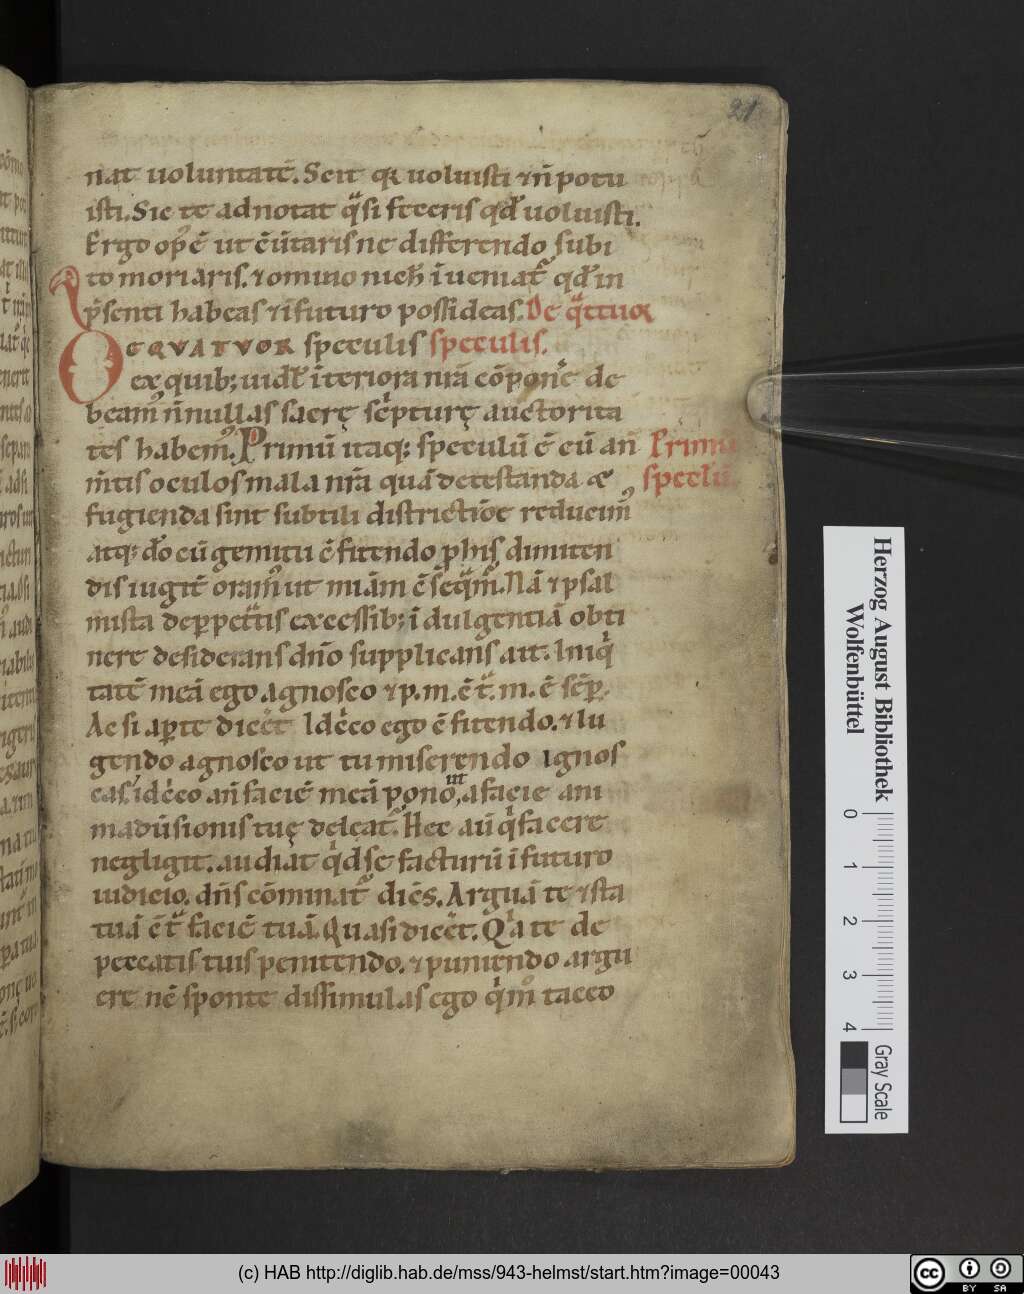 21
nat uoluntatē. Scit q̄ uoluisti ⁊ n̄ potu
isti. Sic te adnotat q̄si feceris qd̄ uoluisti.
Ergo op̄ ē ut ēūtaris ne differendo subi
to moriaris. ⁊ omnino nich̄ īueniat᷑ qd̄ in
p̄senti habeas ⁊ ī futuro possideas. De q̄ttuor
DE QVATVOR speculis speculis.
ex quib; uidēl īteriora nr̄a cōponēe de
beam᷒ n̄nullas sacrę sc̄pturę auctorita
tes habem᷒. Primū itaq; speculū ē cū an̄ Primū
m̄tis oculos mala nr̄a quā detestanda ⁊ spectū.
fugienda sint subtili districtiōe reducim᷒
atq; dō cū gemitu ⁊fitendo
dis iugit̄ oram᷒ ut
mista de ppet̄tis excessib; īdulgentiā obti
nere desiderans dn̄o supplicans ait. Iniq̄
tatē meā ego agnosco ⁊ p. m. ē t̄. m. ē sēp.
Ac si apte dicēt Idēco ego ⁊fitendo. ⁊ lu
gendo agnosco ut tu miserendo ignos
cas. idēco an̄ faciē meā pono, ut a facie ani
maduersionis tuę deleat᷑. Hec aū q̄ facere
negligit. audiat q̄d se facturū ī futuro
iudicio. dn̄s cōminat᷑ dicēs. Arguā te ⁊ sta
tuā ⁊t̄ faciē tuā. Quasi dicēt. Q̄a te de
peccatis tuis penitendo. ⁊ puniendo argu
ere nē sponte dissimulas ego q̄m taceo
Herzog August Bibliothek
Wolfenbüttel
0 1 2 3 4
Gray Scale
(c) HAB http://diglib.hab.de/mss/943-helmst/start.htm?image=00043
cc BY SA